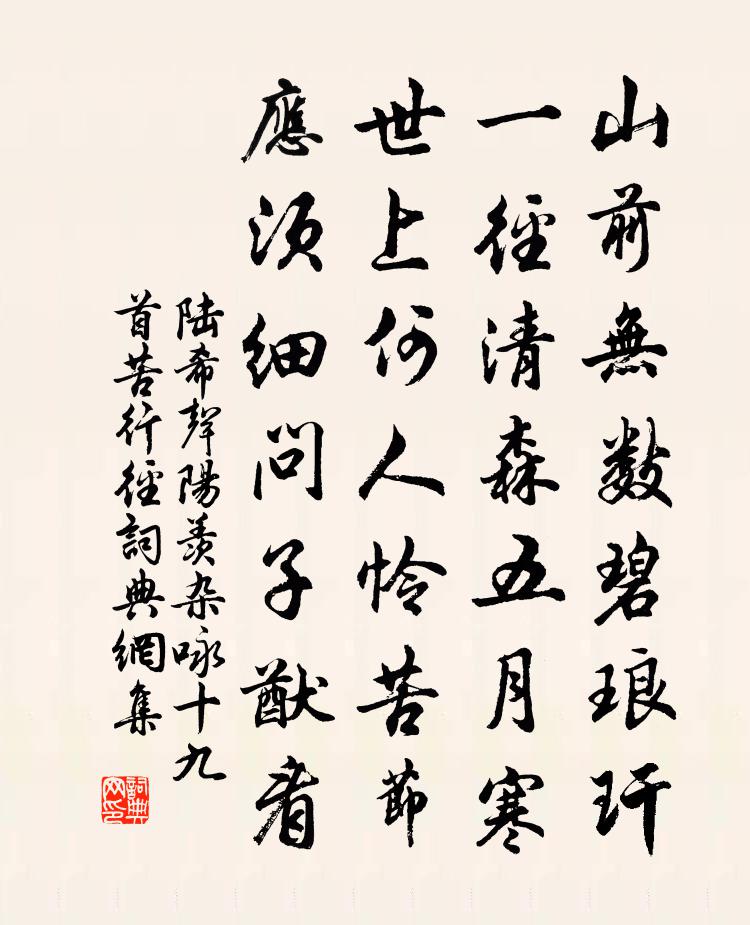 山前無數碧琅玕
一徑清森五月寒
世上何人怜苦節
應須細問子猷看
陆希聲陽羨杂咏十九
首苦行徑詞典網集
詞典網印